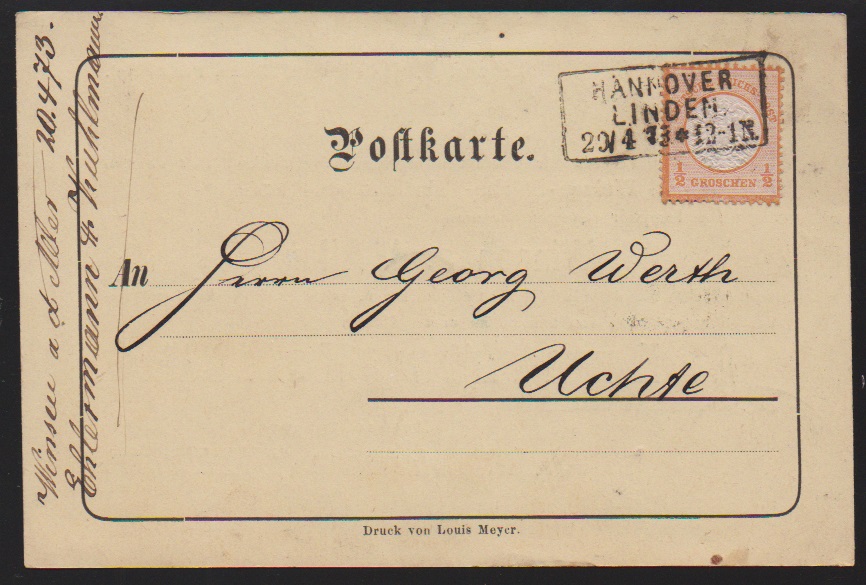 Postkarte.
HANNOVER
LINDEN.
20/4 73 * 12-1N.
1/2 GROSCHEN 1/2
An Herrn Georg Werth
Uchte
Druck von Louis Meyer.
Winsen a d Aller 20.4.73.
& Kuhlmann